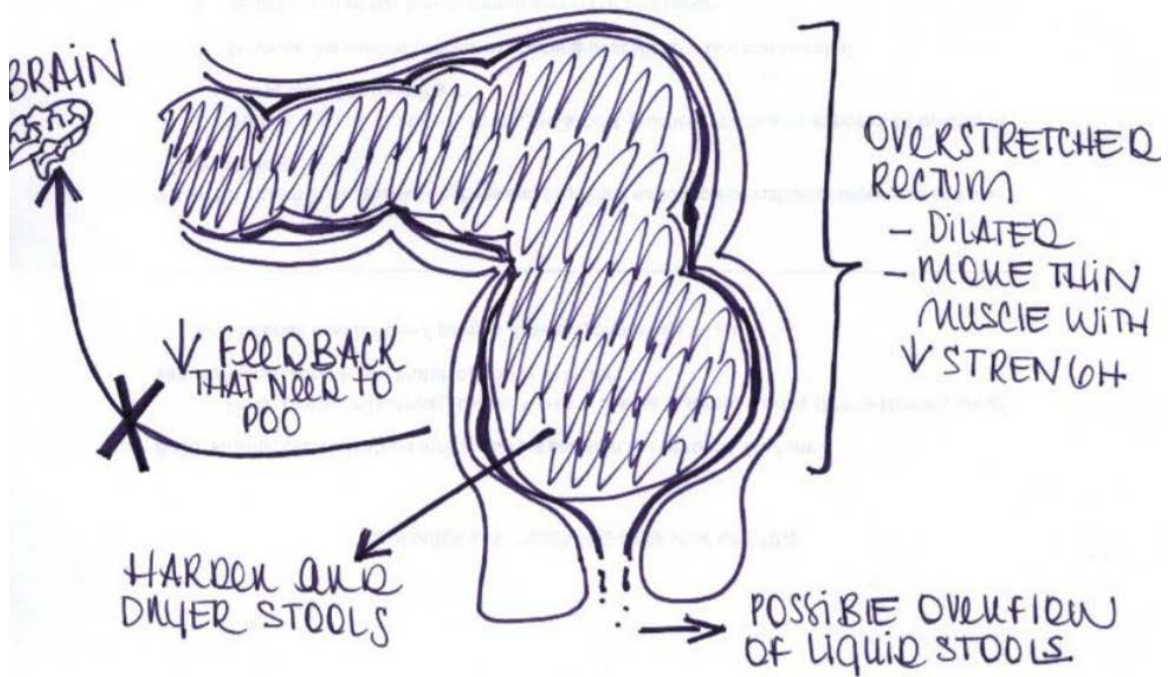 BRAIN
OVERSTRETCHED
RECTUM
- DILATED
- MORE THIN
MUSCLE WITH
↓ STRENGH
↓ FEEDBACK
THAT NEED TO
POO
HARDER AND
DRYER STOOLS
POSSIBLE OVERFLOW
OF LIQUID STOOLS.